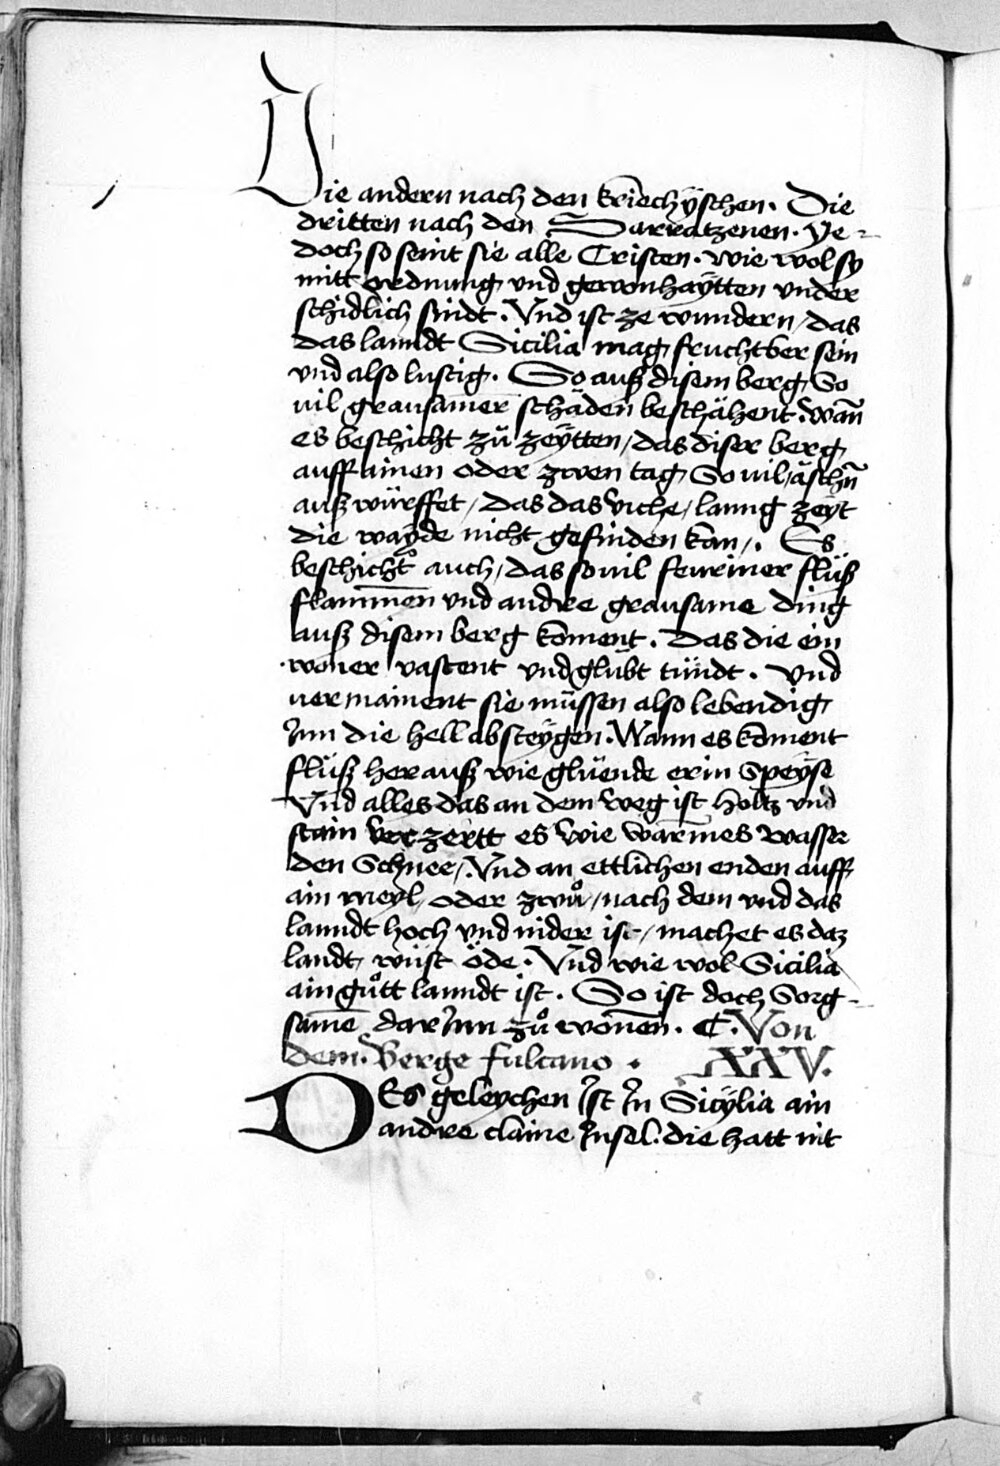 Die andern nach den kriechÿschen. Die
dritten nach den Sarratzenen. Ye-
doch so seint sie alle Cristen. wie wol sy
mitt ordnung vnd gewonhaÿtten vnder
schidlich sindt. Vnd ist ze wundern / das
das lanndt Sicilia mag fruchtber sein
vnd also lustig. So auß disem berg So
uil grausamer schäden beschähent. wañ
es beschicht zů zeÿtten / das diser berg
auff ainen oder zwen tag So uil äschñ
auß würffet / das das viche / lanng zeÿt
die waÿde nicht gefinden kan /. Es
beschicht auch / das so uil feuriner flüß
flam̄en vnd andre grausame ding
auß disem berg koment. Das die ein
woner vastent vnd glübt tündt. vnd
uermainent sie müssen also lebendig
Inn die hell absteÿgen. Wann es koment
flüß herauß wie glüende erin Speÿse
Vnd alles das an dem weg ist holtz vnd
stain verzertt es wie warmes wasser
den Schnee /. Vnd an ettlichen enden auff
ain meyl oder zwů / nach dem vnd das
lanndt hoch vnd nider ist / machet es daz
landt wüst öde. Vnd wie wol Sicilia
ain gůtt lanndt ist. So ist doch Sorg-
sam̄e dar Inn zů wonen̄. C. Von
dem. Berge fulcano. XXV.
DEs geleychen Ist In Sicÿlia ain
andre claine Insel. die hatt nit